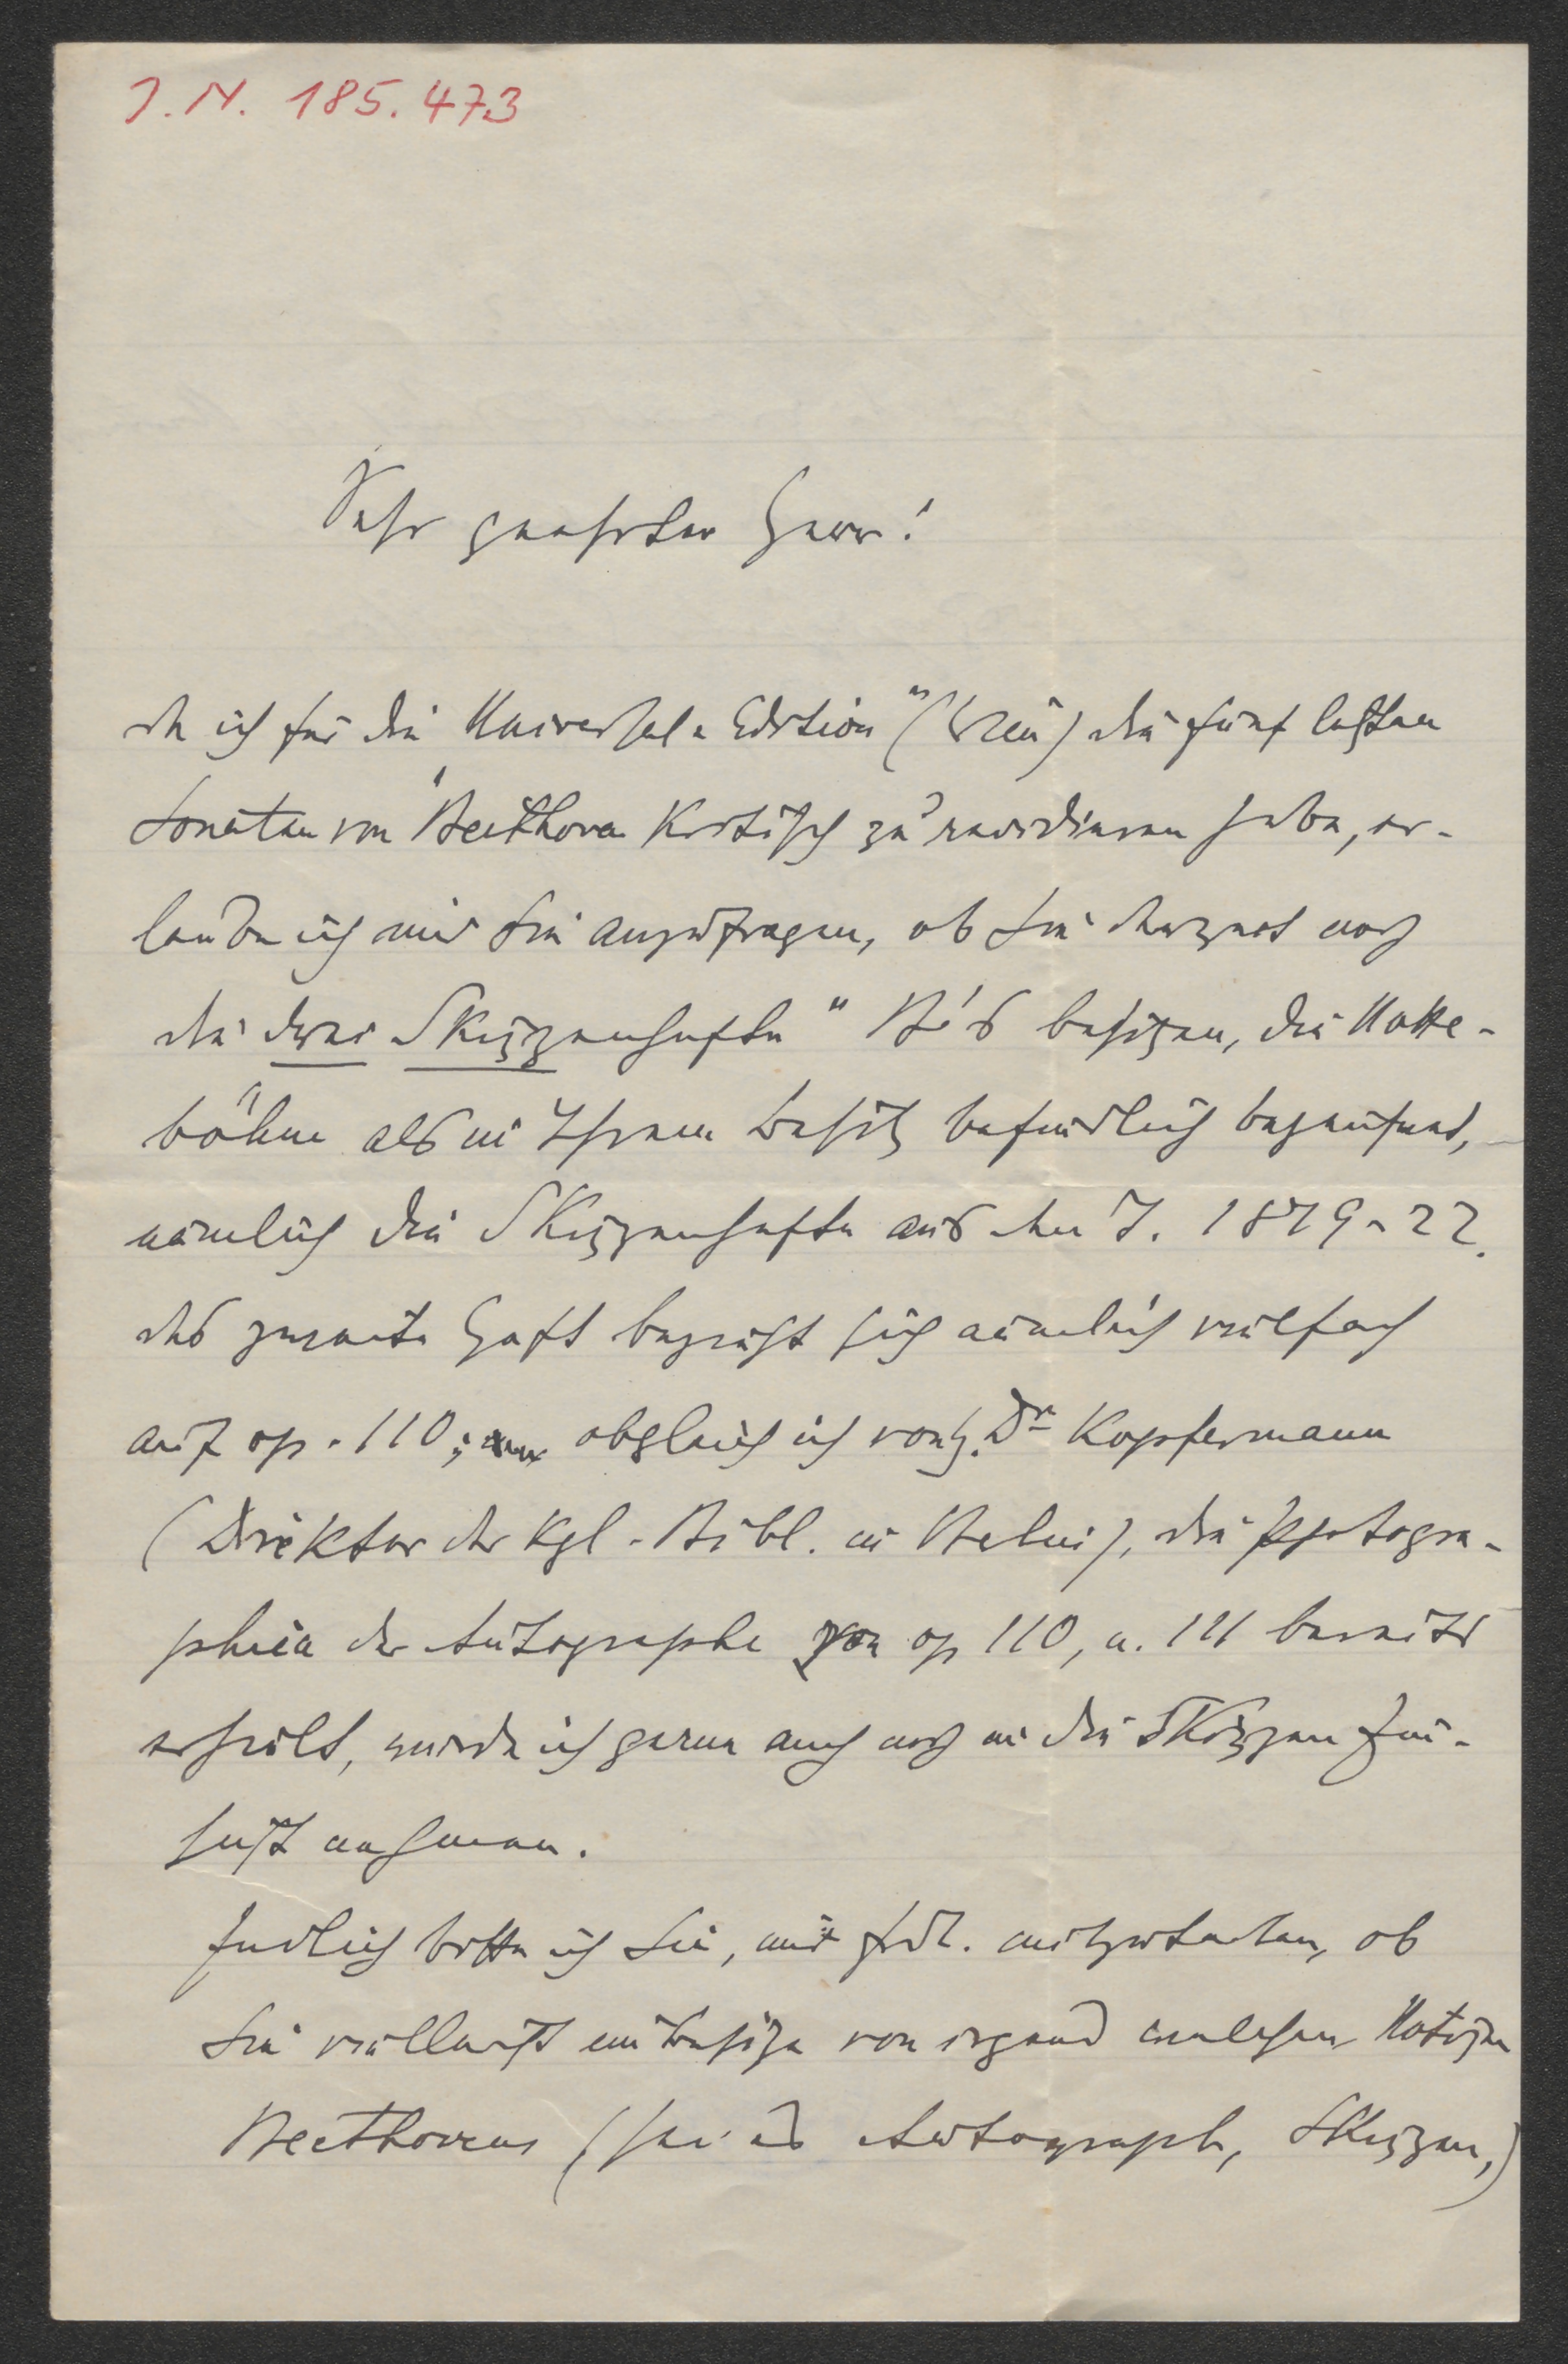 J.N. 185.473
Sehr geehrter Herr!
da ich für die „Universal-Edition" (Wien) die fünf letzten
Sonaten von Beethoven kritisch zu revidieren habe, er-
laube ich mir Sie anzufragen, ob Sie derzeit noch
die drei Skizzenhefte" B's besitzen, die Notte-
bohm als in Ihrem Besitz befindlich bezeichnet,
nämlich die Skizzenhefte aus den J. 1819-22.
Das zweite Heft bezieht sich nämlich vielfach
auf op. 110; obgleich ich von H. Dr Kopfermann
(Direktor der Kgl. Bibl. in Berlin), die Photogra-
phien der Autographe von op 110, u. 111 bereits
erhielt, würde ich gerne auch noch in die Skizzen Ein-
sicht nehmen.
Endlich bitte ich Sie, mir frdl. mitzuteilen, ob
Sie vielleicht im Besitze von irgend welchen Notizen
Beethovens (sei es Autograph, Skizzen,)